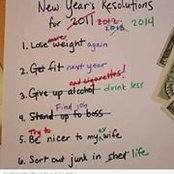 New Year's Resolutions
for 2011 2012 2013 2014
1. Lose more weight again
2. Get fit next year
and cigarettes!
3. Give up alcohol drink less
Find job
4. Stand up to boss
Try to ex
5. Be nicer to my wife
6. Sort out junk in shed life